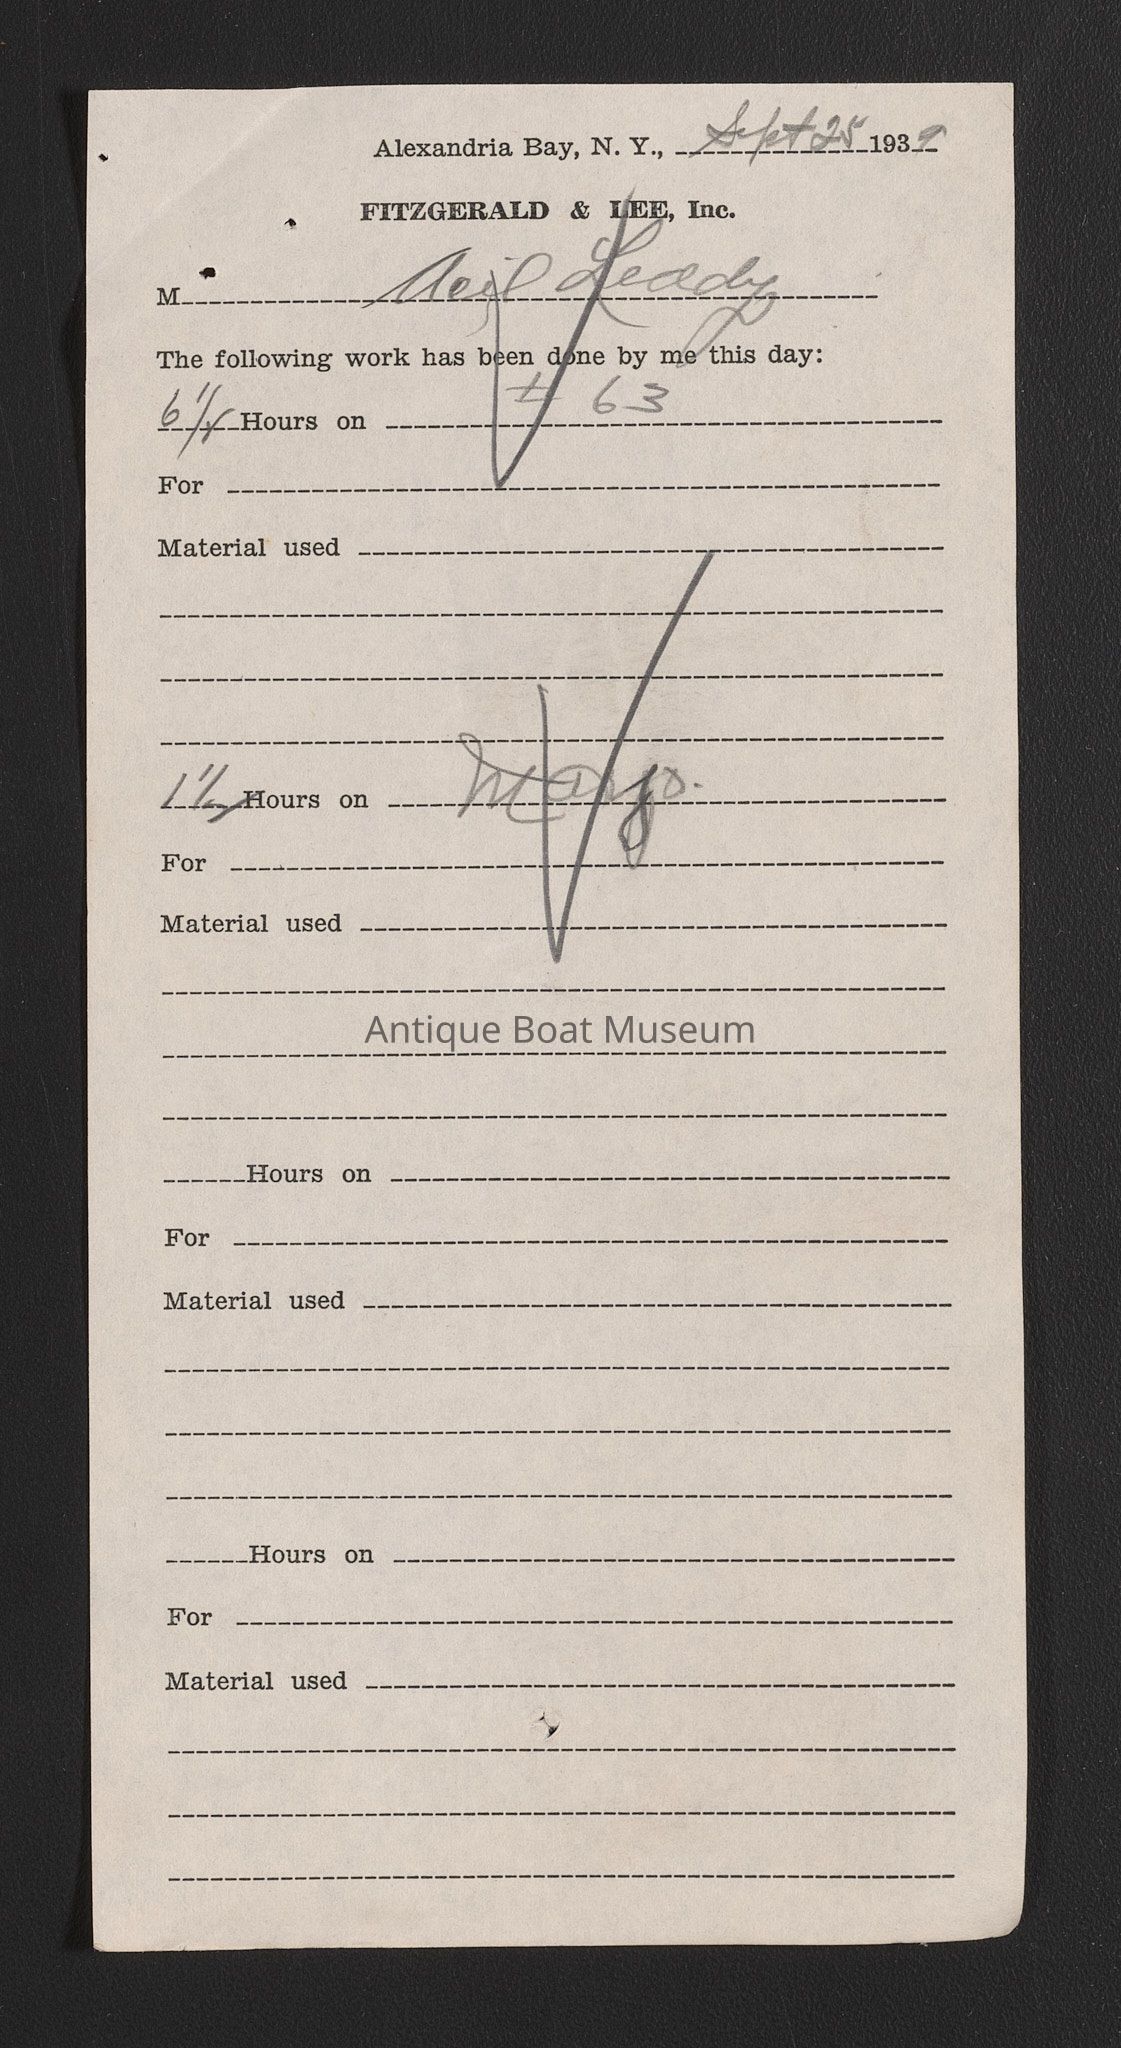 Alexandria Bay, N. Y., Sept 25 1939
FITZGERALD & LEE, Inc.
M Neil Leddy
The following work has been done by me this day:
6 1/2 Hours on # 63
For
Material used
1 1/2 Hours on
For
Material used
Antique Boat Museum
Hours on
For
Material used
Hours on
For
Material used